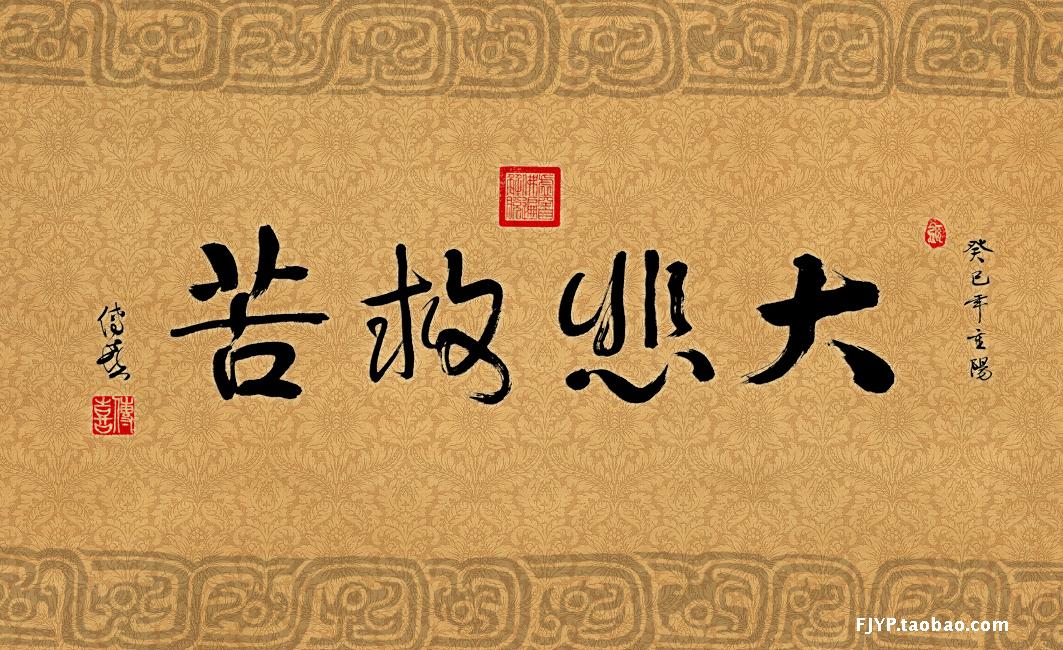 癸巳年重陽
大悲救苦
傳喜
傳喜
FJYP.taobao.com